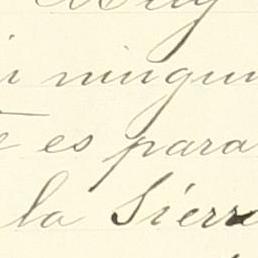 Muy
i ningun
e es para
la Sierra